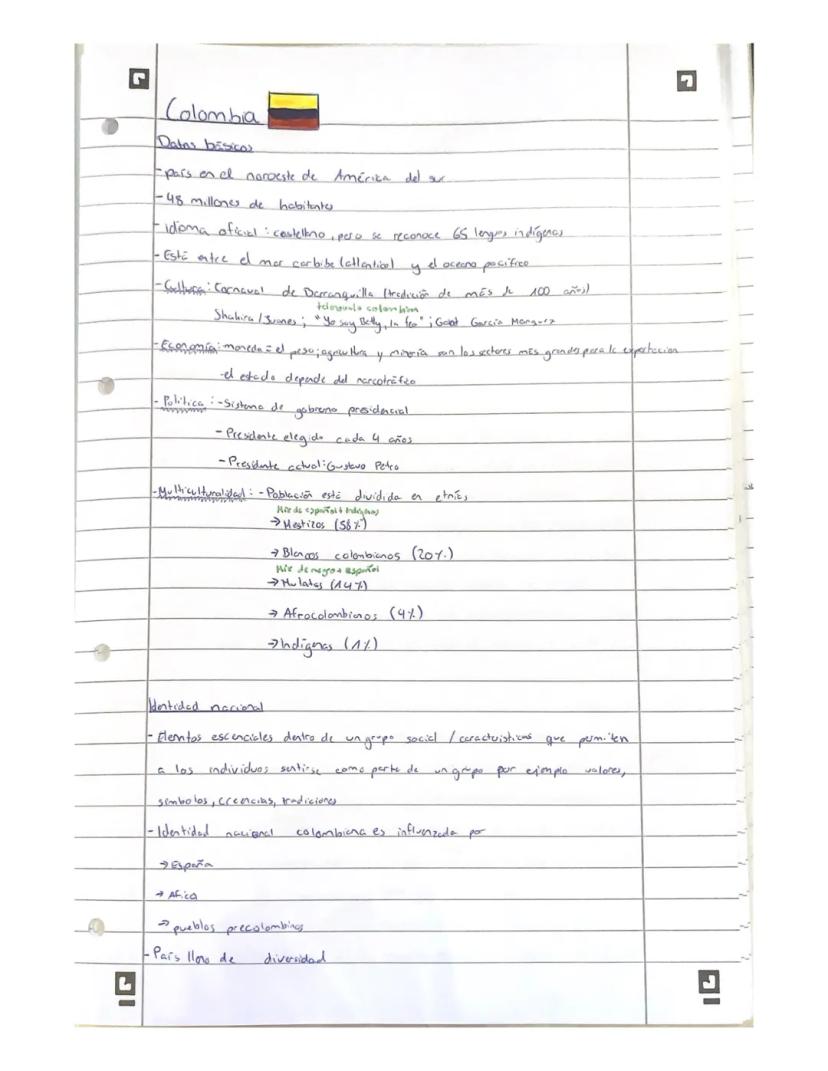 Colombia
Datos básicos
-país en el noroeste de América del sur
-48 millones de habitantes
-idioma oficial: castellano, pero se reconoce 65 lenguas indígenas
-Está entre el mar caribe (atlantico) y el oceano pacifico
-Cultura: Carnaval de Barranquilla (tradición de más de 100 años)
telenovela colombina
Shakira/Juanes; "Yo soy Betty, la fea"; Gabt Garcia Marquez
-Economía: moneda = el peso; agricultura y minería son los sectores más grandes para la exportacion
-el estado depende del narcotráfico
-Politica: -Sistema de gobierno presidencial
-Presidente elegido cada 4 años
-Presidente actual: Gustavo Petro
-Multiculturalidad: -Población está dividida en etnias
Mix de español + Indígenas
→Mestizos (58%)
→Blancos colombianos (20%)
Mix de negro + español
→Mulatas (14%)
→Afrocolombianos (4%)
→Indígenas (1%)
Identidad nacional
-Elemtos escenciales dentro de un grupo social / caracteristicas que permiten
a los individuos sentirse como parte de un grupo por ejemplo valores,
simbolos, creencias, tradiciones
-Identidad nacional colombiana es influenzada por
→España
→Africa
→pueblos precolombinos
-País lleno de diversidad